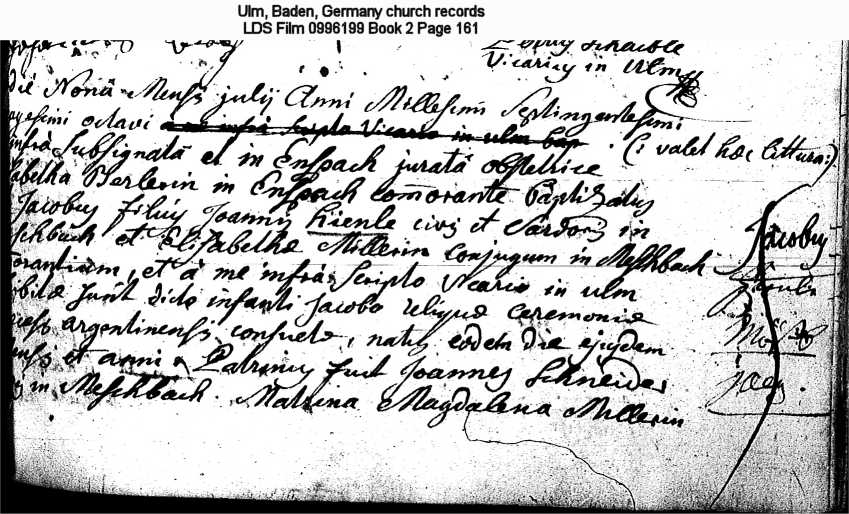 Ulm, Baden, Germany church records
LDS Film 0996199 Book 2 Page 161
Schaible
Vicariy in Ulm
die Nonâ Mensis julij Anni Millesimi Septingentesimi
gesimi octavi a me infra scripto Vicario in ulm bap (: valet hæc littura:)
infra subsignatâ et in Enspach juratâ obstetrice
abetha Herlerin in Enspach comorante Baptizatus
Jacobus filius Joannis Kienle civis et Sardoris in
schbach et Elisabethæ Millerin conjugum in Meschbach
orantium, et à me infra scripto Vicario in ulm
bitæ sunt dicto infanti Jacobo reliquæ ceremoniæ
argentinensis consuetæ, natus eodem die ejusdem
ensis et anni & Patrinus fuit Joannes Schneider
in Meschbach. Matrina Magdalena Millerin
Jacobus